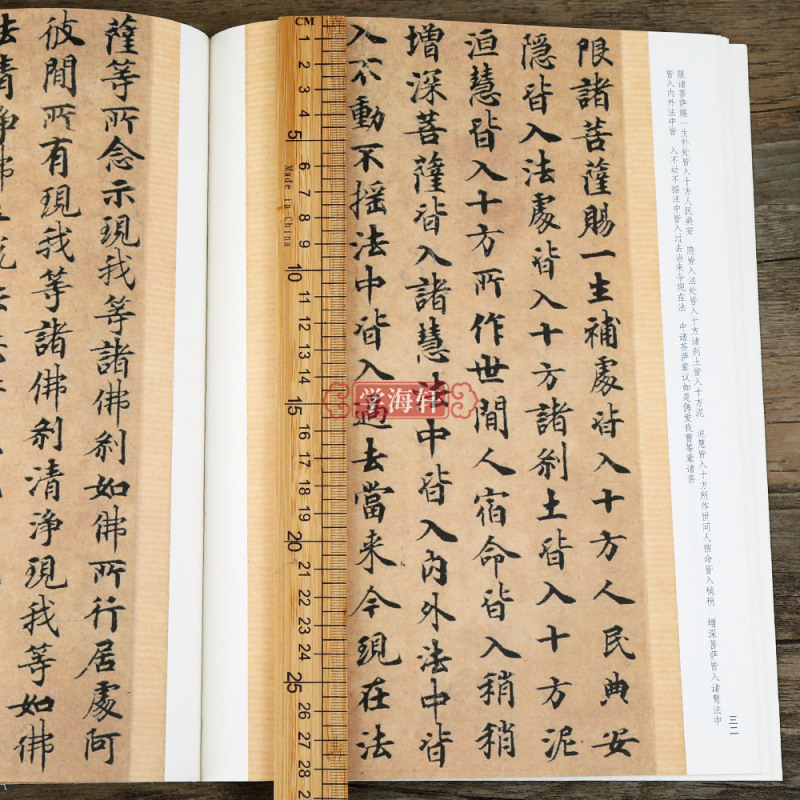 限諸菩薩賜一生補處皆入十方人民典安
隱皆入法處皆入十方諸剎土皆入十方泥
洹慧皆入十方所作世間人宿命皆入稍稍
增深菩薩皆入諸慧法中皆入內外法中皆
入不動不摇法中皆入過去當来今現在法
限诸菩萨赐一生补处皆入十方人民典安 隐皆入法处皆入十方诸刹土皆入十方泥 洹慧皆入十方所作世间人宿命皆入稍稍 增深菩萨皆入诸慧法中
皆入内外法中皆 入不动不摇法中皆入过去当来今现在法 中诸菩萨辈议如是佛爱我曹等辈诸菩
三二
薩等所念示現我等諸佛剎如佛所行居處阿
彼間所有現我等諸佛剎清淨現我等如佛
法清淨佛
CM
1
2
3
4
5
6
7
8
9
10
11
12
13
14
15
16
17
18
19
20
21
22
23
24
25
26
27
28
2
5
10
15
20
25
Made in China
学海轩